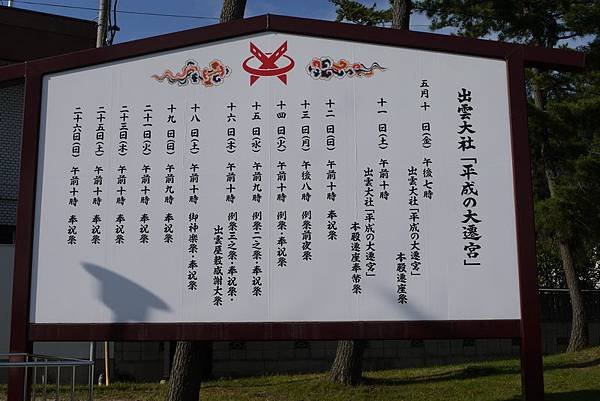 出雲大社「平成の大遷宮」
五月十日(金) 午後七時
出雲大社「平成の大遷宮」
本殿遷座祭
十一日(土) 午前十時
出雲大社「平成の大遷宮」
本殿遷座奉幣祭
十二日(日) 午前十時 奉祝祭
十三日(月) 午後八時 例祭前夜祭
十四日(火) 午前十時 例祭・奉祝祭
十五日(水) 午前九時 例祭二之祭・奉祝祭
十六日(木) 午前十時 例祭三之祭・奉祝祭・
出雲屋敷感謝大祭
十八日(土) 午前十時 御神楽祭・奉祝祭
十九日(日) 午前九時 奉祝祭
二十一日(火) 午前十時 奉祝祭
二十三日(木) 午前十時 奉祝祭
二十五日(土) 午前十時 奉祝祭
二十六日(日) 午前十時 奉祝祭